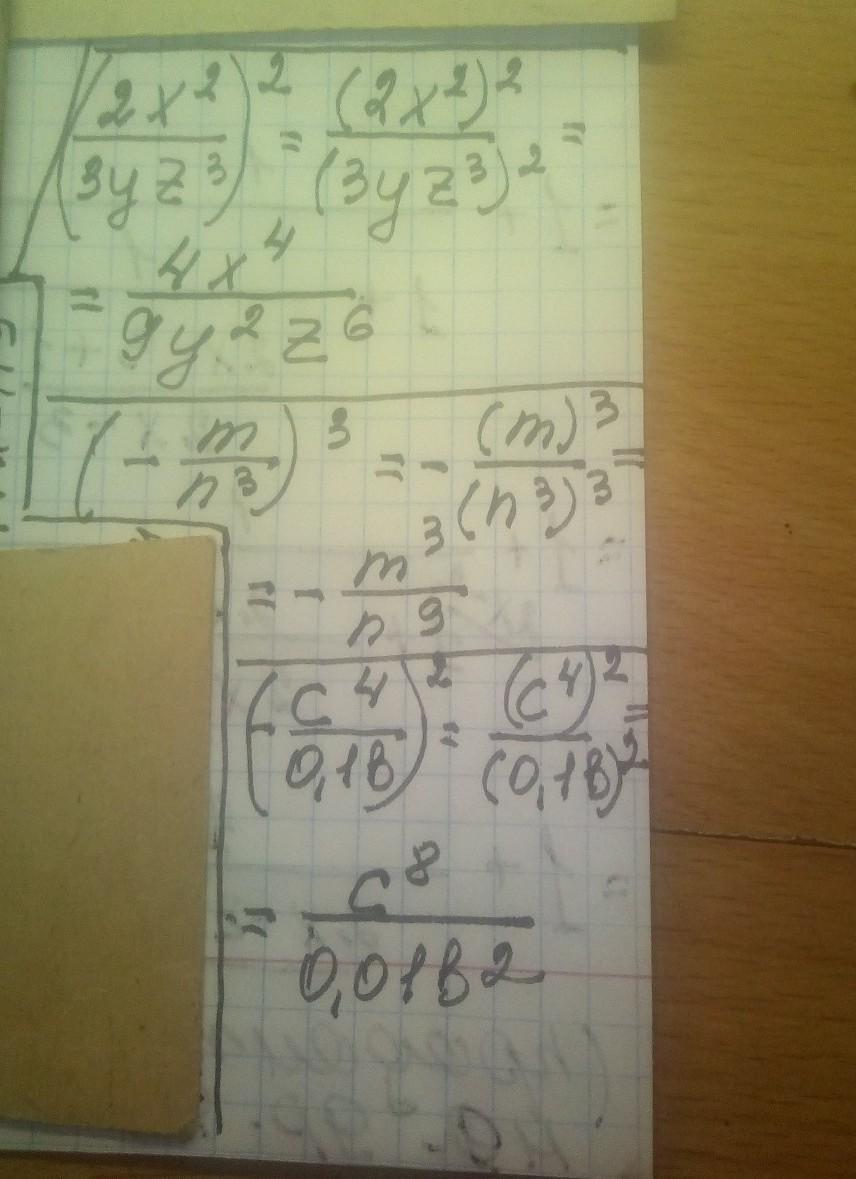 (2x²/3yz³)² = (2x²)²/(3yz³)² =
= 4x⁴/9y²z⁶
(-m/n³)³ = -(m)³/(n³)³ =
= -m³/n⁹
(-c⁴/0,1в)² = (c⁴)²/(0,1в)² =
= c⁸/0,01в²